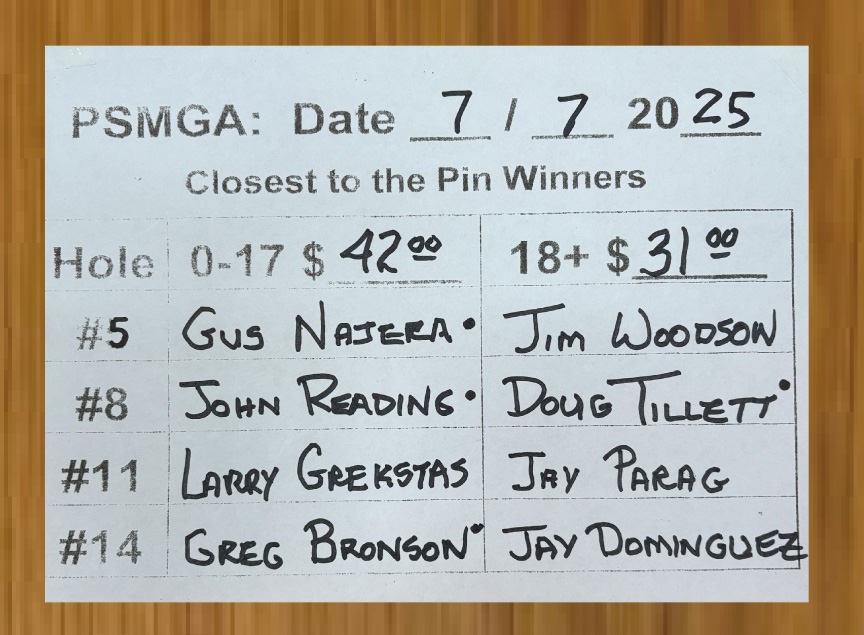 PSMGA: Date 7 / 7 2025
Closest to the Pin Winners
Hole 0-17 $ 42 00 18+ $ 31 00
#5 GUS NAJERA • JIM WOODSON
#8 JOHN READING • DOUG TILLETT •
#11 LARRY GREKSTAS JAY PARAG
#14 GREG BRONSON • JAY DOMINGUEZ